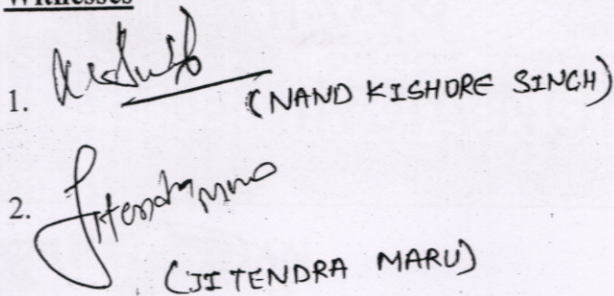 Witnesses
1.
(NAND KISHORE SINGH)
2. Jitendra
(JITENDRA MARU)